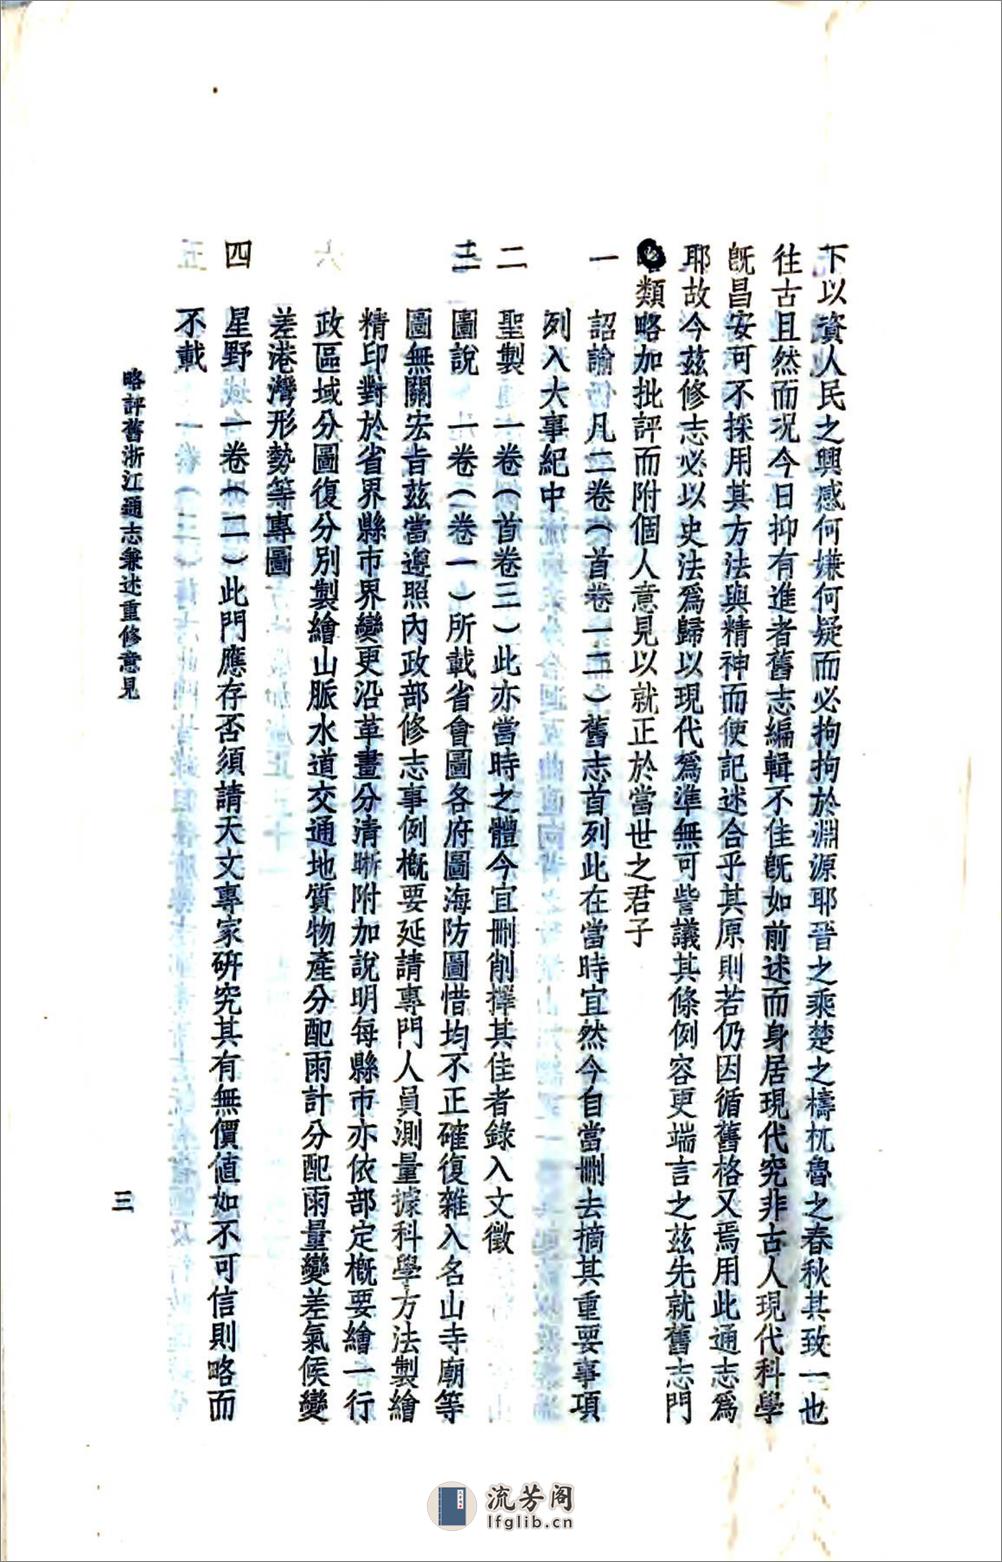 下以資人民之興感何嫌何疑而必拘拘於淵源耶晉之乘楚之檮杌魯之春秋其致一也
往古且然而况今日抑有進者舊志編輯不佳旣如前述而身居現代究非古人現代科學
旣昌安可不採用其方法與精神而使記述合乎其原則若仍因循舊格又焉用此通志爲
耶故今茲修志必以史法爲歸以現代爲準無可訾議其條例容更端言之茲先就舊志門
類略加批評而附個人意見以就正於當世之君子
一 詔諭 凡二卷（首卷一二）舊志首列此在當時宜然今自當刪去摘其重要事項
列入大事紀中
二 聖製 一卷（首卷三）此亦當時之體今宜刪削擇其佳者錄入文徵
三 圖說 一卷（卷一）所載省會圖各府圖海防圖惜均不正確復雜入名山寺廟等
圖無關宏旨茲當遵照內政部修志事例概要延請專門人員測量據科學方法製繪
精印對於省界縣市界變更沿革畫分清晰附加說明每縣市亦依部定概要繪一行
政區域分圖復分別製繪山脈水道交通地質物產分配雨計分配雨量變差氣候變
差港灣形勢等專圖
四 星野 一卷（二）此門應存否須請天文專家硏究其有無價值如不可信則略而
不載
略評舊浙江通志兼述重修意見
三
流芳阁
lfglib.cn